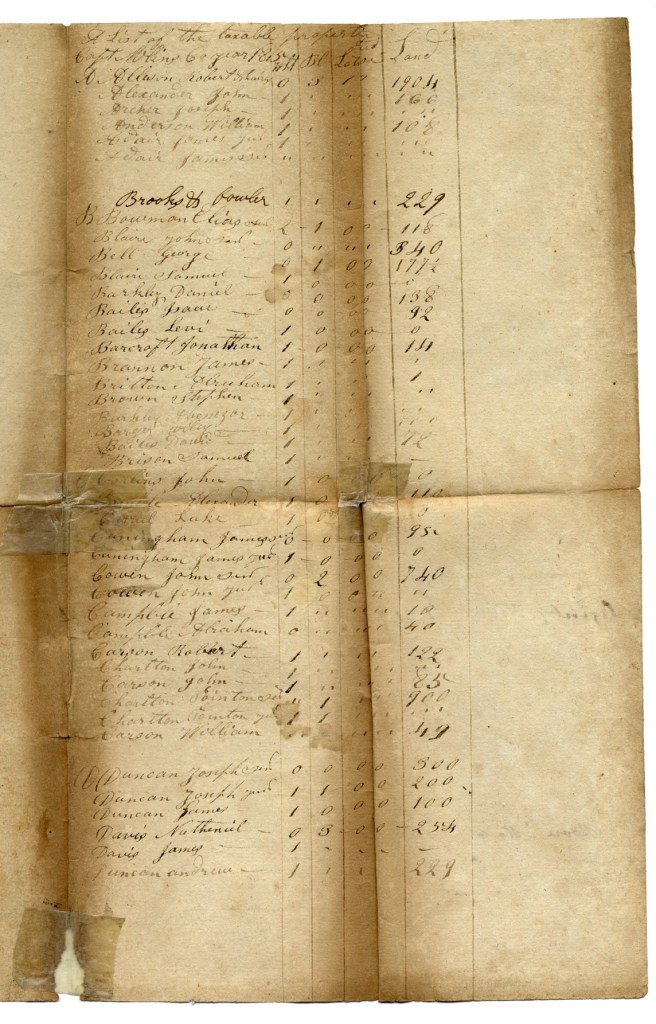 A List of the taxable property
Capt Co year 1815 WH Bl Lotts Land
A Allison Robert 0 3 1 1904
Alexander John 1 " " " 166
Archer Joseph 1 " " "
Anderson William 1 " " " 108
Adair James Jun 1 " " "
Adair James Sen " " " "
Brooks & Cowler 1 " " " 229
B Bowman Elias 2 - 1 - 00 - 118
Blaire John Sen 0 " " " 340
Bell George - 0 1 00 177½
Blaire Samuel - 1 0 00 0
Barkley Daniel - 0 0 00 138
Bailes Isaac - 0 0 00 92
Bailes Levi - 1 0 00 0
Barcroft Jonathan 1 - 0 00 14
Brannon James - 1 " " "
Britton Abraham 1 " " " 1
Brown Stephen 1 " " "
Barkley Ebenezor - 1 " " "
1 " " "
Bailes David - 1 " " " 78
Brison Samuel 1 " " " -
John - 1 0 0 0 0
Alexander 1 0 110
Luke 1 0 0
Cuningham James Sen 0 - 0 0 0 95
Cuningham James Jun 1 - 0 00 0
Cowen John Sen 0 2 00 740
Cowen John Jun 1 0 " " "
Campble James - 1 " " " 10
Campble Abraham 0 " " " 40
Carson Robert - 1 1 " " 122
Charlton John - 1 " " "
Carson John - 1 " " " 25
Charlton Pointon Sen " 1 " " 900
Charlton Pointon Jun 1 1 " "
Carson William " " " 49
D Duncan Joseph Sen 0 0 0 0 300
Duncan Joseph Jun 1 1 00 200
Duncan James 1 0 0 0 100
Davis Nathaniel - 0 3 - 00 - 254
Davis James - 1 - - - -
Duncan andrew - 1 " " 229